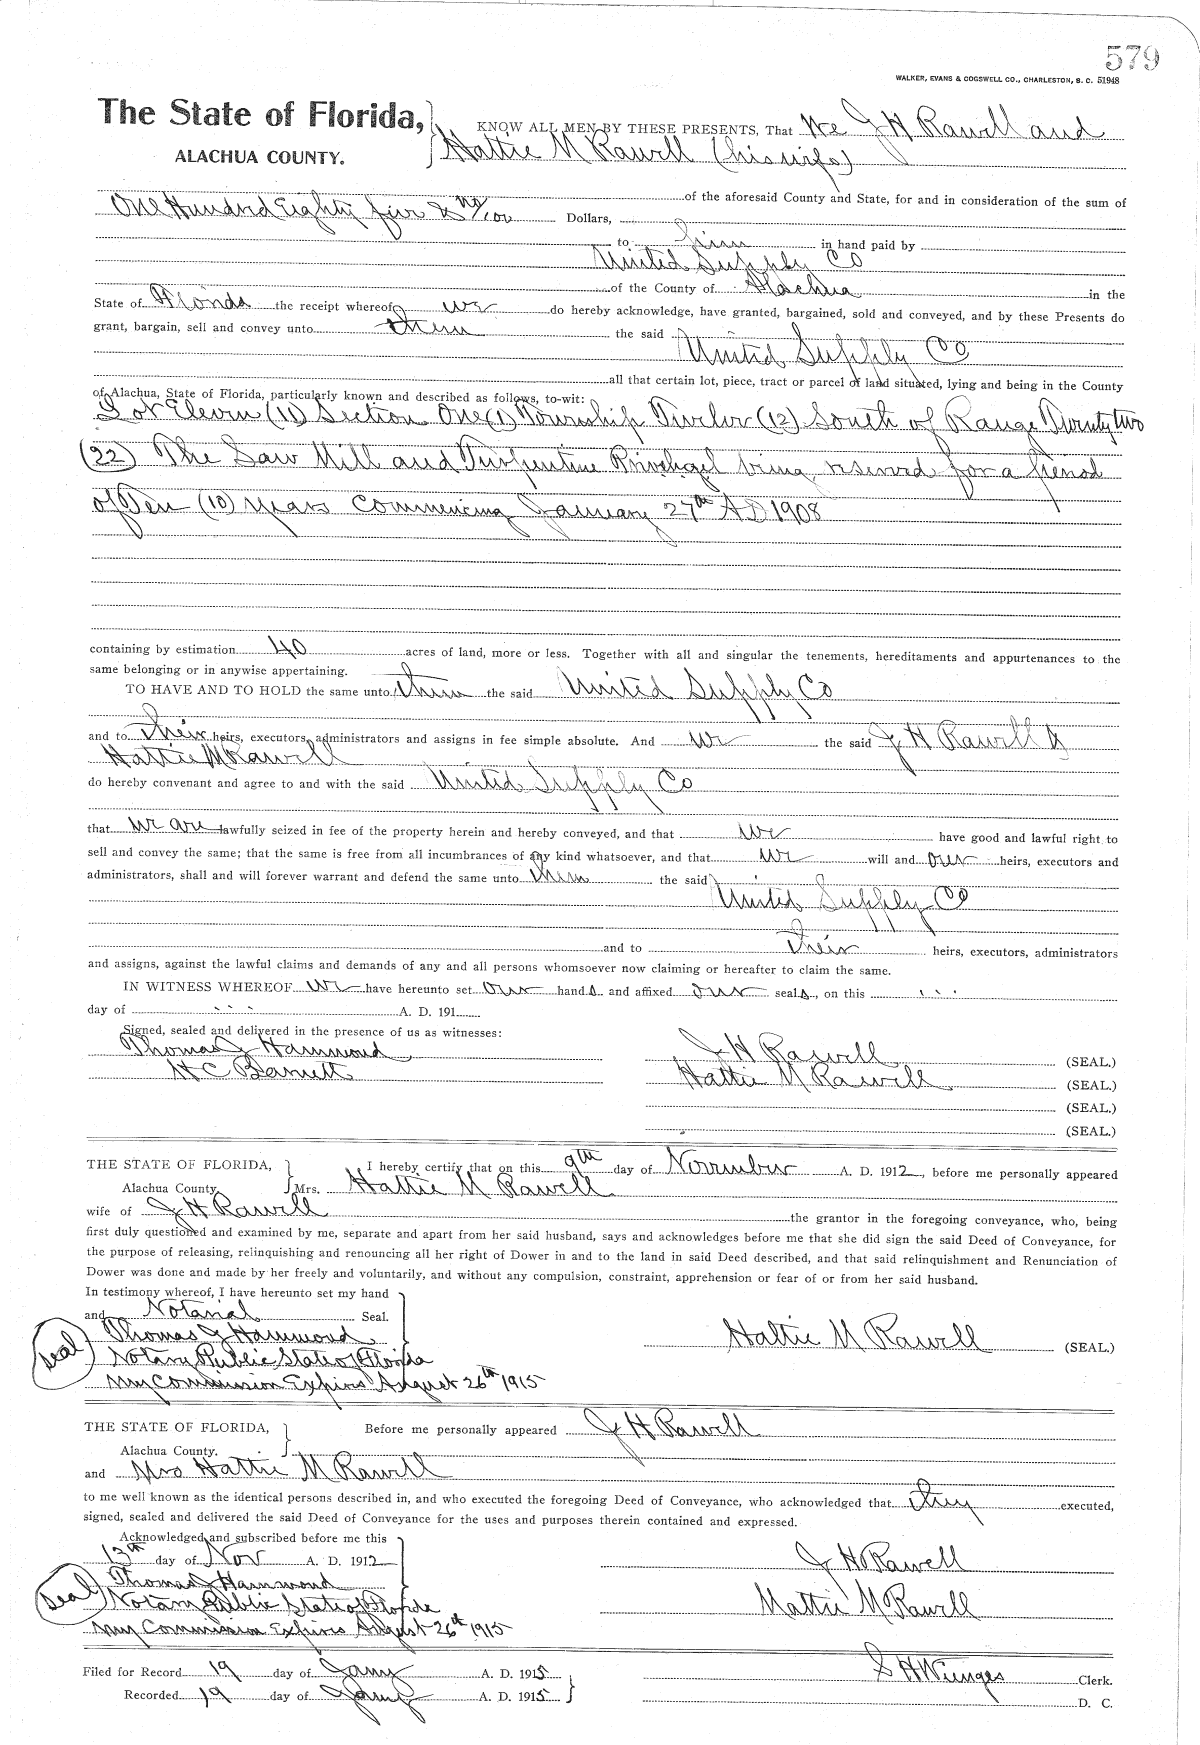 579
WALKER, EVANS & COGSWELL CO., CHARLESTON, S. C. 51948
The State of Florida,
ALACHUA COUNTY.
KNOW ALL MEN BY THESE PRESENTS, That We J H Rawell and
Hattie M Rawell (his wife)
of the aforesaid County and State, for and in consideration of the sum of
One Hundred Eighty five & no/100 Dollars,
to him in hand paid by
United Supply Co
of the County of Alachua in the
State of Florida the receipt whereof we do hereby acknowledge, have granted, bargained, sold and conveyed, and by these Presents do
grant, bargain, sell and convey unto them the said United Supply Co
all that certain lot, piece, tract or parcel of land situated, lying and being in the County
of Alachua, State of Florida, particularly known and described as follows, to-wit:
Lot Eleven (11) Section One (1) Township Twelve (12) South of Range Twenty two
(22) The Saw Mill and Turpentine Privileges being reserved for a period
of Ten (10) years commencing January 27th AD 1908
containing by estimation 40 acres of land, more or less. Together with all and singular the tenements, hereditaments and appurtenances to the
same belonging or in anywise appertaining.
TO HAVE AND TO HOLD the same unto them the said United Supply Co
and to their heirs, executors, administrators and assigns in fee simple absolute. And we the said J H Rawell &
Hattie M Rawell
do hereby convenant and agree to and with the said United Supply Co
that we are lawfully seized in fee of the property herein and hereby conveyed, and that we have good and lawful right to
sell and convey the same; that the same is free from all incumbrances of any kind whatsoever, and that we will and our heirs, executors and
administrators, shall and will forever warrant and defend the same unto them the said
United Supply Co
and to their heirs, executors, administrators
and assigns, against the lawful claims and demands of any and all persons whomsoever now claiming or hereafter to claim the same.
IN WITNESS WHEREOF we have hereunto set our hands and affixed our seals, on this . . .
day of . . . A. D. 191
Signed, sealed and delivered in the presence of us as witnesses:
Thomas J Hammond J H Rawell (SEAL.)
H C Barnett Hattie M Rawell (SEAL.)
(SEAL.)
(SEAL.)
THE STATE OF FLORIDA,
Alachua County
I hereby certify that on this 9th day of November A. D. 1912, before me personally appeared
Mrs. Hattie M Rawell
wife of J H Rawell the grantor in the foregoing conveyance, who, being
first duly questioned and examined by me, separate and apart from her said husband, says and acknowledges before me that she did sign the said Deed of Conveyance, for
the purpose of releasing, relinquishing and renouncing all her right of Dower in and to the land in said Deed described, and that said relinquishment and Renunciation of
Dower was done and made by her freely and voluntarily, and without any compulsion, constraint, apprehension or fear of or from her said husband.
In testimony whereof, I have hereunto set my hand
and Notarial Seal.
Seal Thomas J Hammond Hattie M Rawell (SEAL.)
Notary Public State of Florida
My Commission Expires August 26th 1915
THE STATE OF FLORIDA,
Alachua County.
Before me personally appeared J H Rawell
and Mrs Hattie M Rawell
to me well known as the identical persons described in, and who executed the foregoing Deed of Conveyance, who acknowledged that they executed,
signed, sealed and delivered the said Deed of Conveyance for the uses and purposes therein contained and expressed.
Acknowledged and subscribed before me this
13th day of Nov A. D. 1912 J H Rawell
Seal Thomas J Hammond
Notary Public State of Florida Mattie M Rawell
My Commission Expires August 26th 1915
Filed for Record 19 day of Jany A. D. 1915 S H Wienges Clerk.
Recorded 19 day of Jany A. D. 1915 D. C.